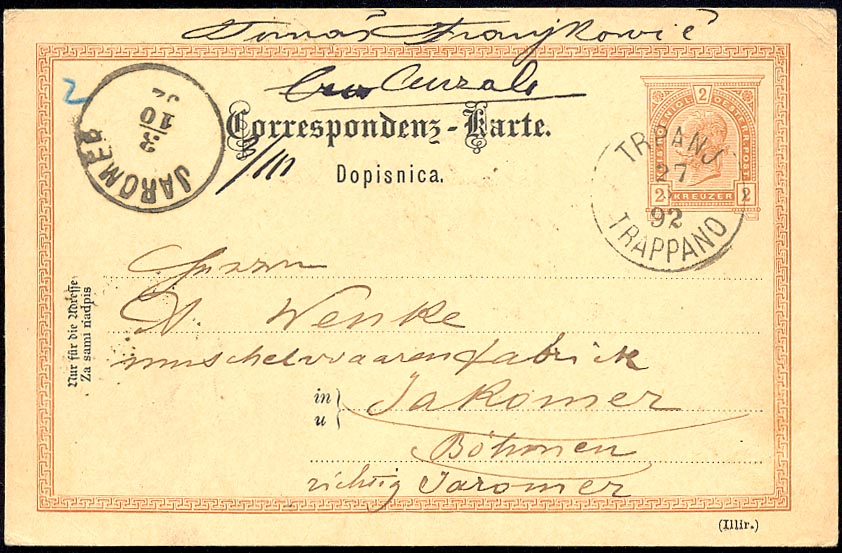 Tomáš Franjković
Cuzale
2
KREUZER
2 2
Correspondenz-Karte.
Dopisnica.
JAROMĚŘ
3
10
92
TRPANJ
27
92
TRAPPANO
Nur für die Adresse
Za sami nadpis
Herrn
A. Wenke
muschelwaarenfabrick
in
u
Jakomer
Böhmen
richtig Jaromer
(Illir.)